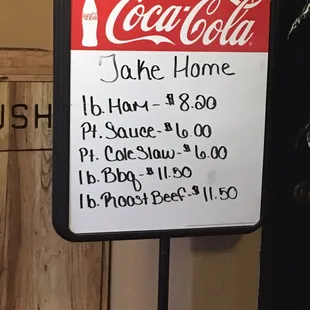 Coca-Cola
Take Home
lb. Ham - $8.20
Pt. Sauce - $6.00
Pt. Cole Slaw - $6.00
lb. Bbq - $11.50
lb. Roast Beef - $11.50
USH